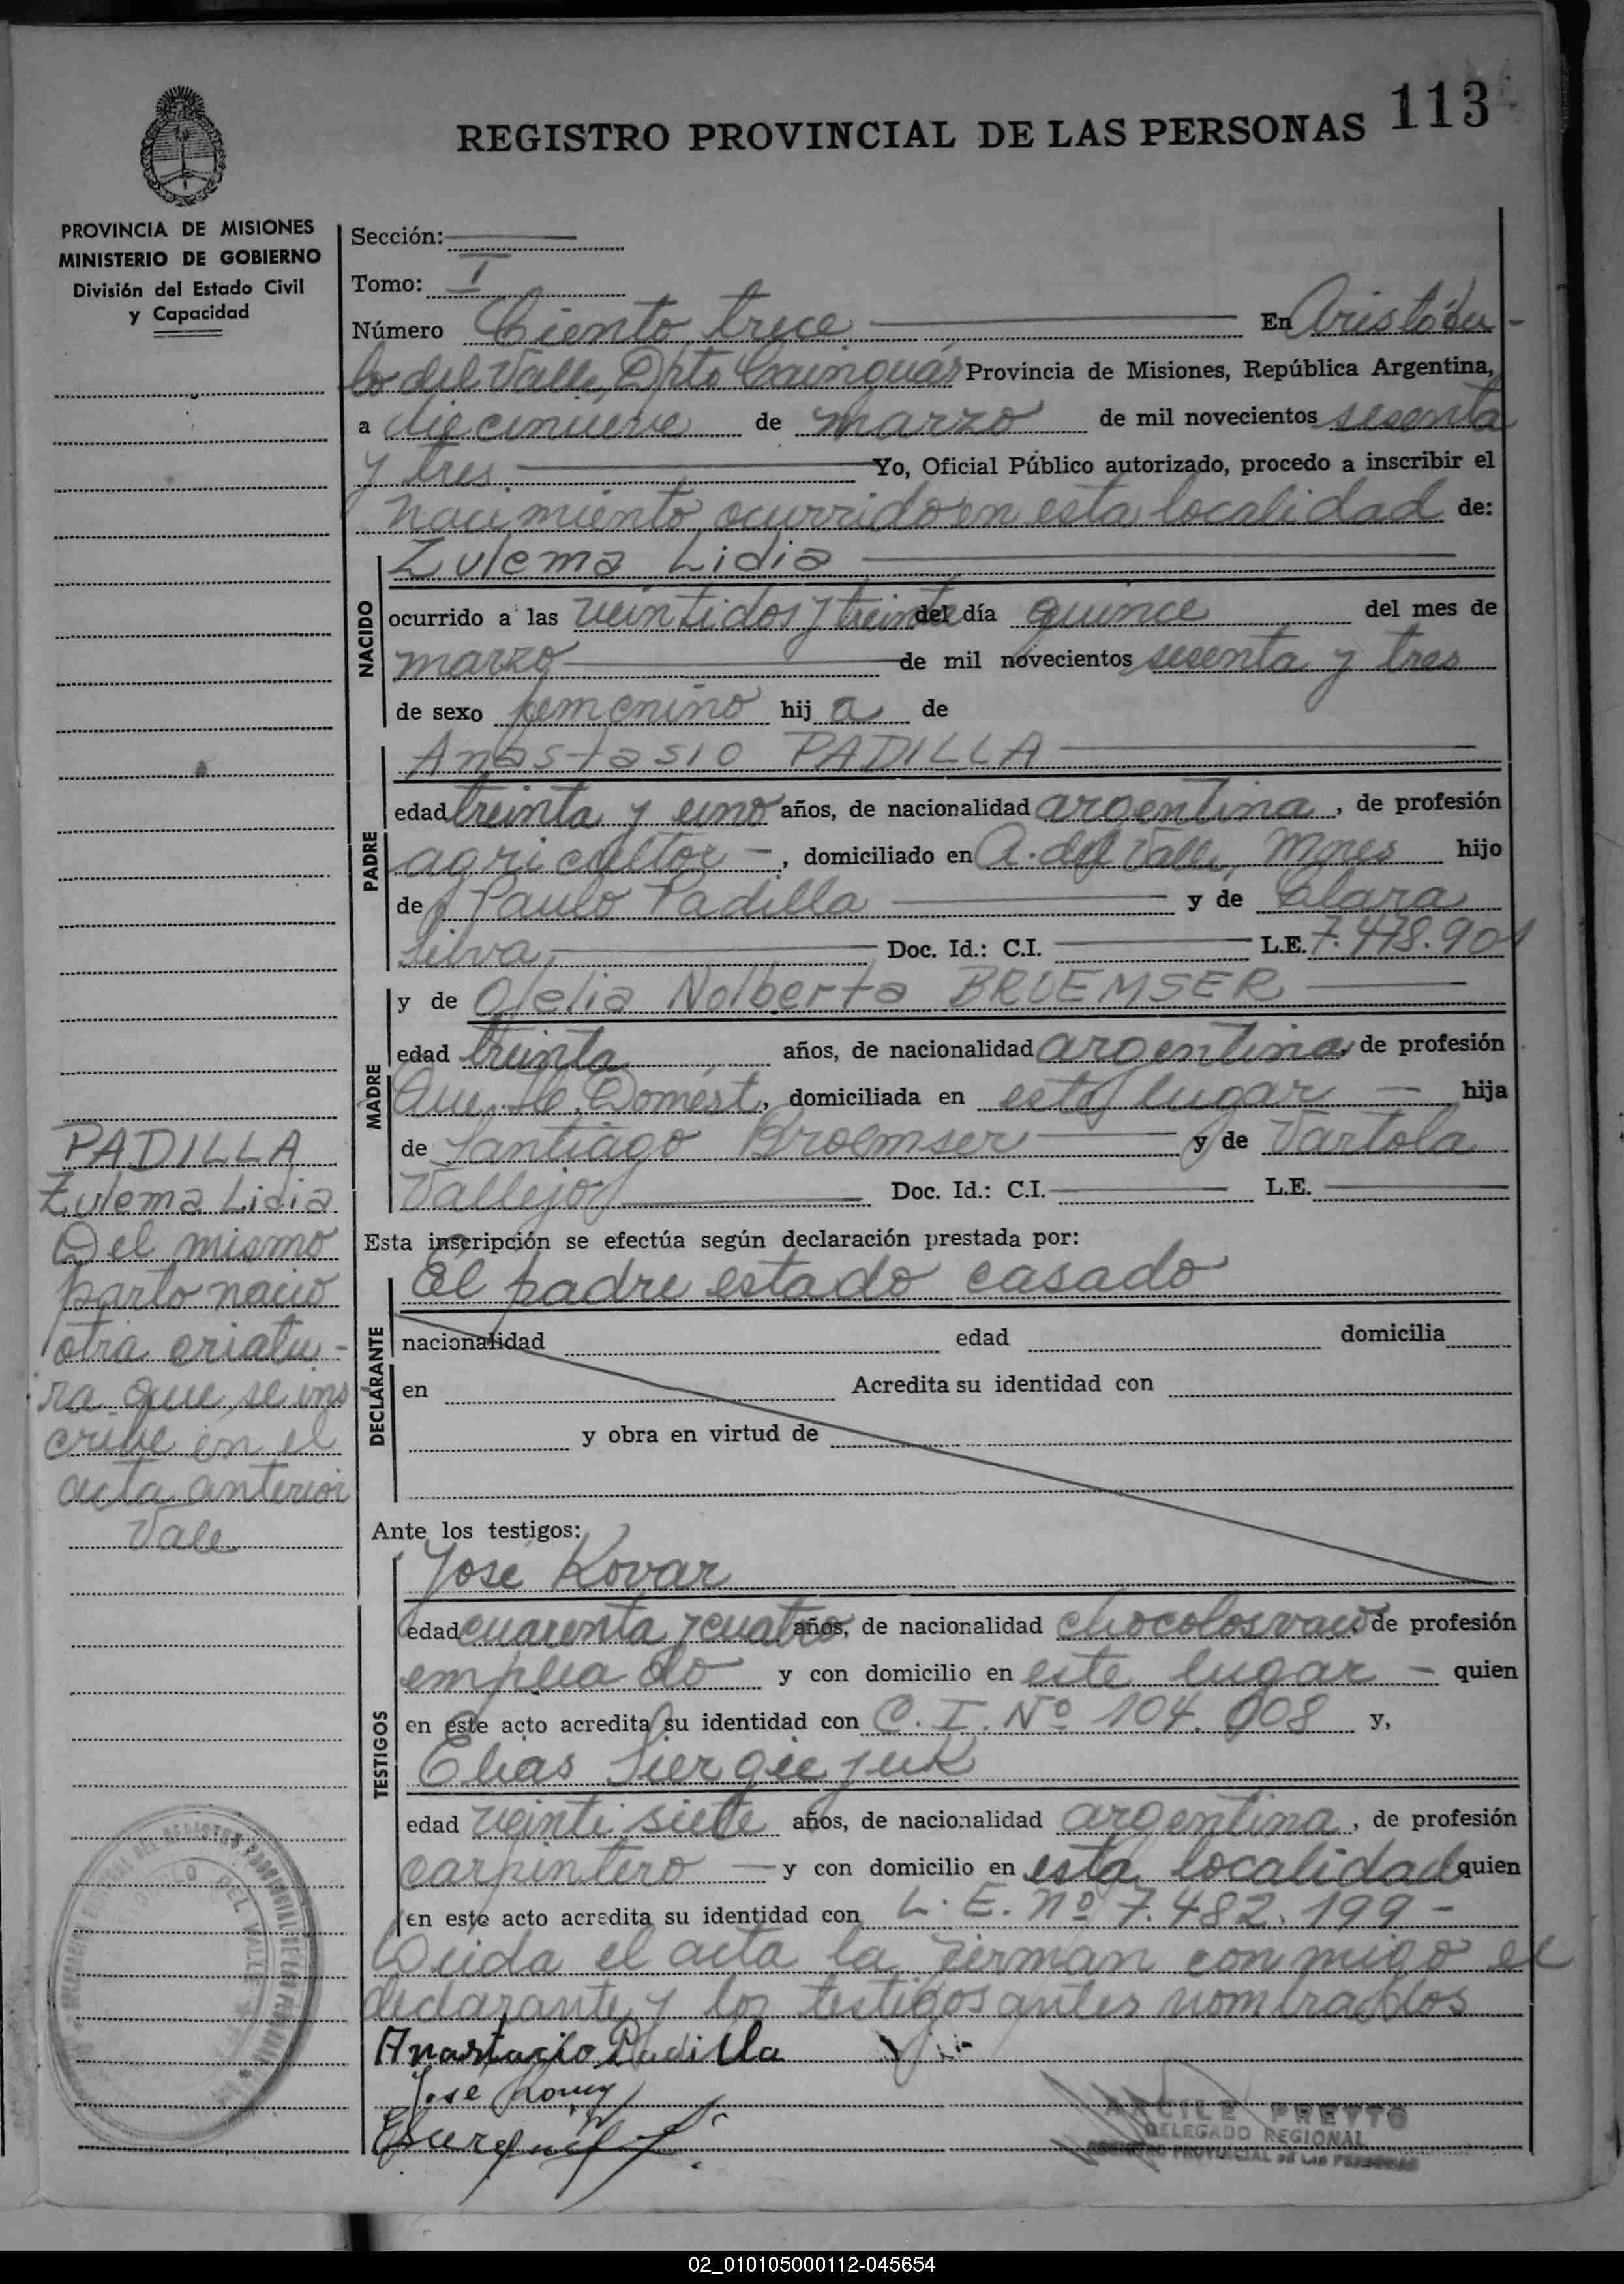 113
REGISTRO PROVINCIAL DE LAS PERSONAS
PROVINCIA DE MISIONES
MINISTERIO DE GOBIERNO
División del Estado Civil
y Capacidad
Sección:
Tomo: I
Número Ciento trece En Aristóbu-
lo del Valle, Dpto Cainguás Provincia de Misiones, República Argentina,
a diecinueve de marzo de mil novecientos sesenta
y tres. Yo, Oficial Público autorizado, procedo a inscribir el
nacimiento ocurrido en esta localidad de:
NACIDO
Zulema Lidia
ocurrido a las veintidos y treinta del día quince del mes de
marzo de mil novecientos sesenta y tres
de sexo femenino hij a de
PADRE
Anastasio PADILLA
edad treinta y uno años, de nacionalidad argentina, de profesión
agricultor -, domiciliado en A. del Valle, Mnes hijo
de Paulo Padilla y de Clara
Silva, Doc. Id.: C.I. L.E. 7.478.901
MADRE
y de Ofelia Nolberta BROEMSER
edad treinta años, de nacionalidad argentina, de profesión
Que. He. Domést, domiciliada en este lugar - hija
de Santiago Broemser y de Vartola
Vallejos Doc. Id.: C.I. L.E.
Esta inscripción se efectúa según declaración prestada por:
DECLARANTE
El padre estado casado
nacionalidad edad domicilia
en Acredita su identidad con
y obra en virtud de
Ante los testigos:
TESTIGOS
José Kovar
edad cuarenta y cuatro años, de nacionalidad chocolosvaco de profesión
empleado y con domicilio en este lugar - quien
en este acto acredita su identidad con C. I. Nº 104.008 y,
Elias Siergiejuk
edad veinti siete años, de nacionalidad argentina, de profesión
carpintero - y con domicilio en esta localidad quien
en este acto acredita su identidad con L. E. nº 7.482.199 -
Leida el acta la firman conmigo el
declarante y los testigos antes nombrados
Anastacio Padilla
José Kovar
ARCILE PRETTO
DELEGADO REGIONAL
REGISTRO PROVINCIAL DE LAS PERSONAS
PADILLA
Zulema Lidia
Del mismo
parto nacio
otra criatu-
ra que se ins
cribe en el
acta anterior
Vale
02_010105000112-045654